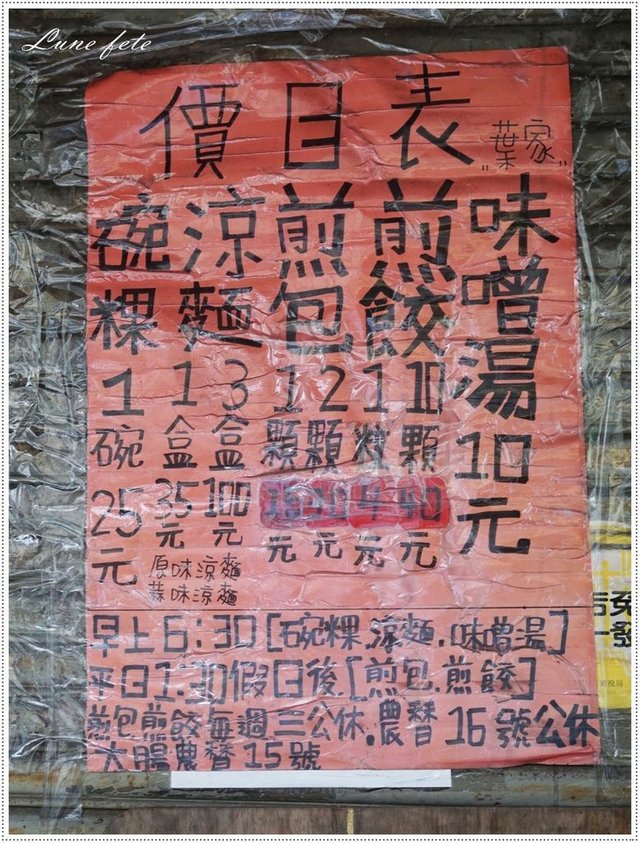 Lune fete
價目表
"葉家"
味噌湯10元
煎餃
1粒4元
10顆40元
煎包
1顆元
2顆元
涼麵
1盒35元
3盒100元
原味涼麵
蒜味涼麵
碗粿
1碗25元
早上6:30[碗粿.涼麵.味噌湯]
平日1:30假日後.[煎包.煎餃]
煎包煎餃每週三公休.農替16號公休
大腸農替15號